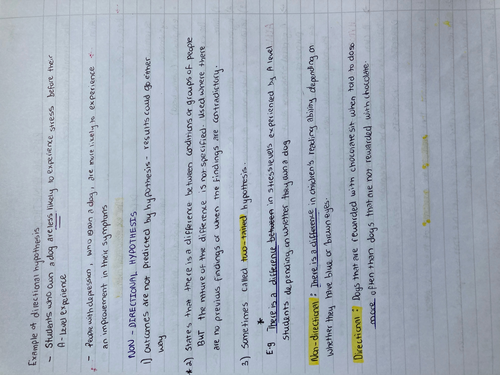 Example of directional hypothesis
~ Students who own a dog are less likely to experience stress before their
A-level experience
~ People with depression, who own a dog, are more likely to experience
an improvement in their symptoms
NON-DIRECTIONAL HYPOTHESIS
1) Outcomes are not predicted by hypothesis - results could go either
way
* 2) States that there is a difference between conditions or groups of people
BUT the nature of the difference is not specified. Used where there
are no previous findings or when the findings are contradictory.
3) Sometimes called two-tailed hypothesis.
E.g There is a difference between in stress levels experienced by A level
students depending on whether they own a dog
Non-directional: There is a difference in children's reading ability depending on
whether they have blue or brown eyes.
Directional: Dogs that are rewarded with chocolate sit when told to do so
more often than dogs that are not rewarded with chocolate.